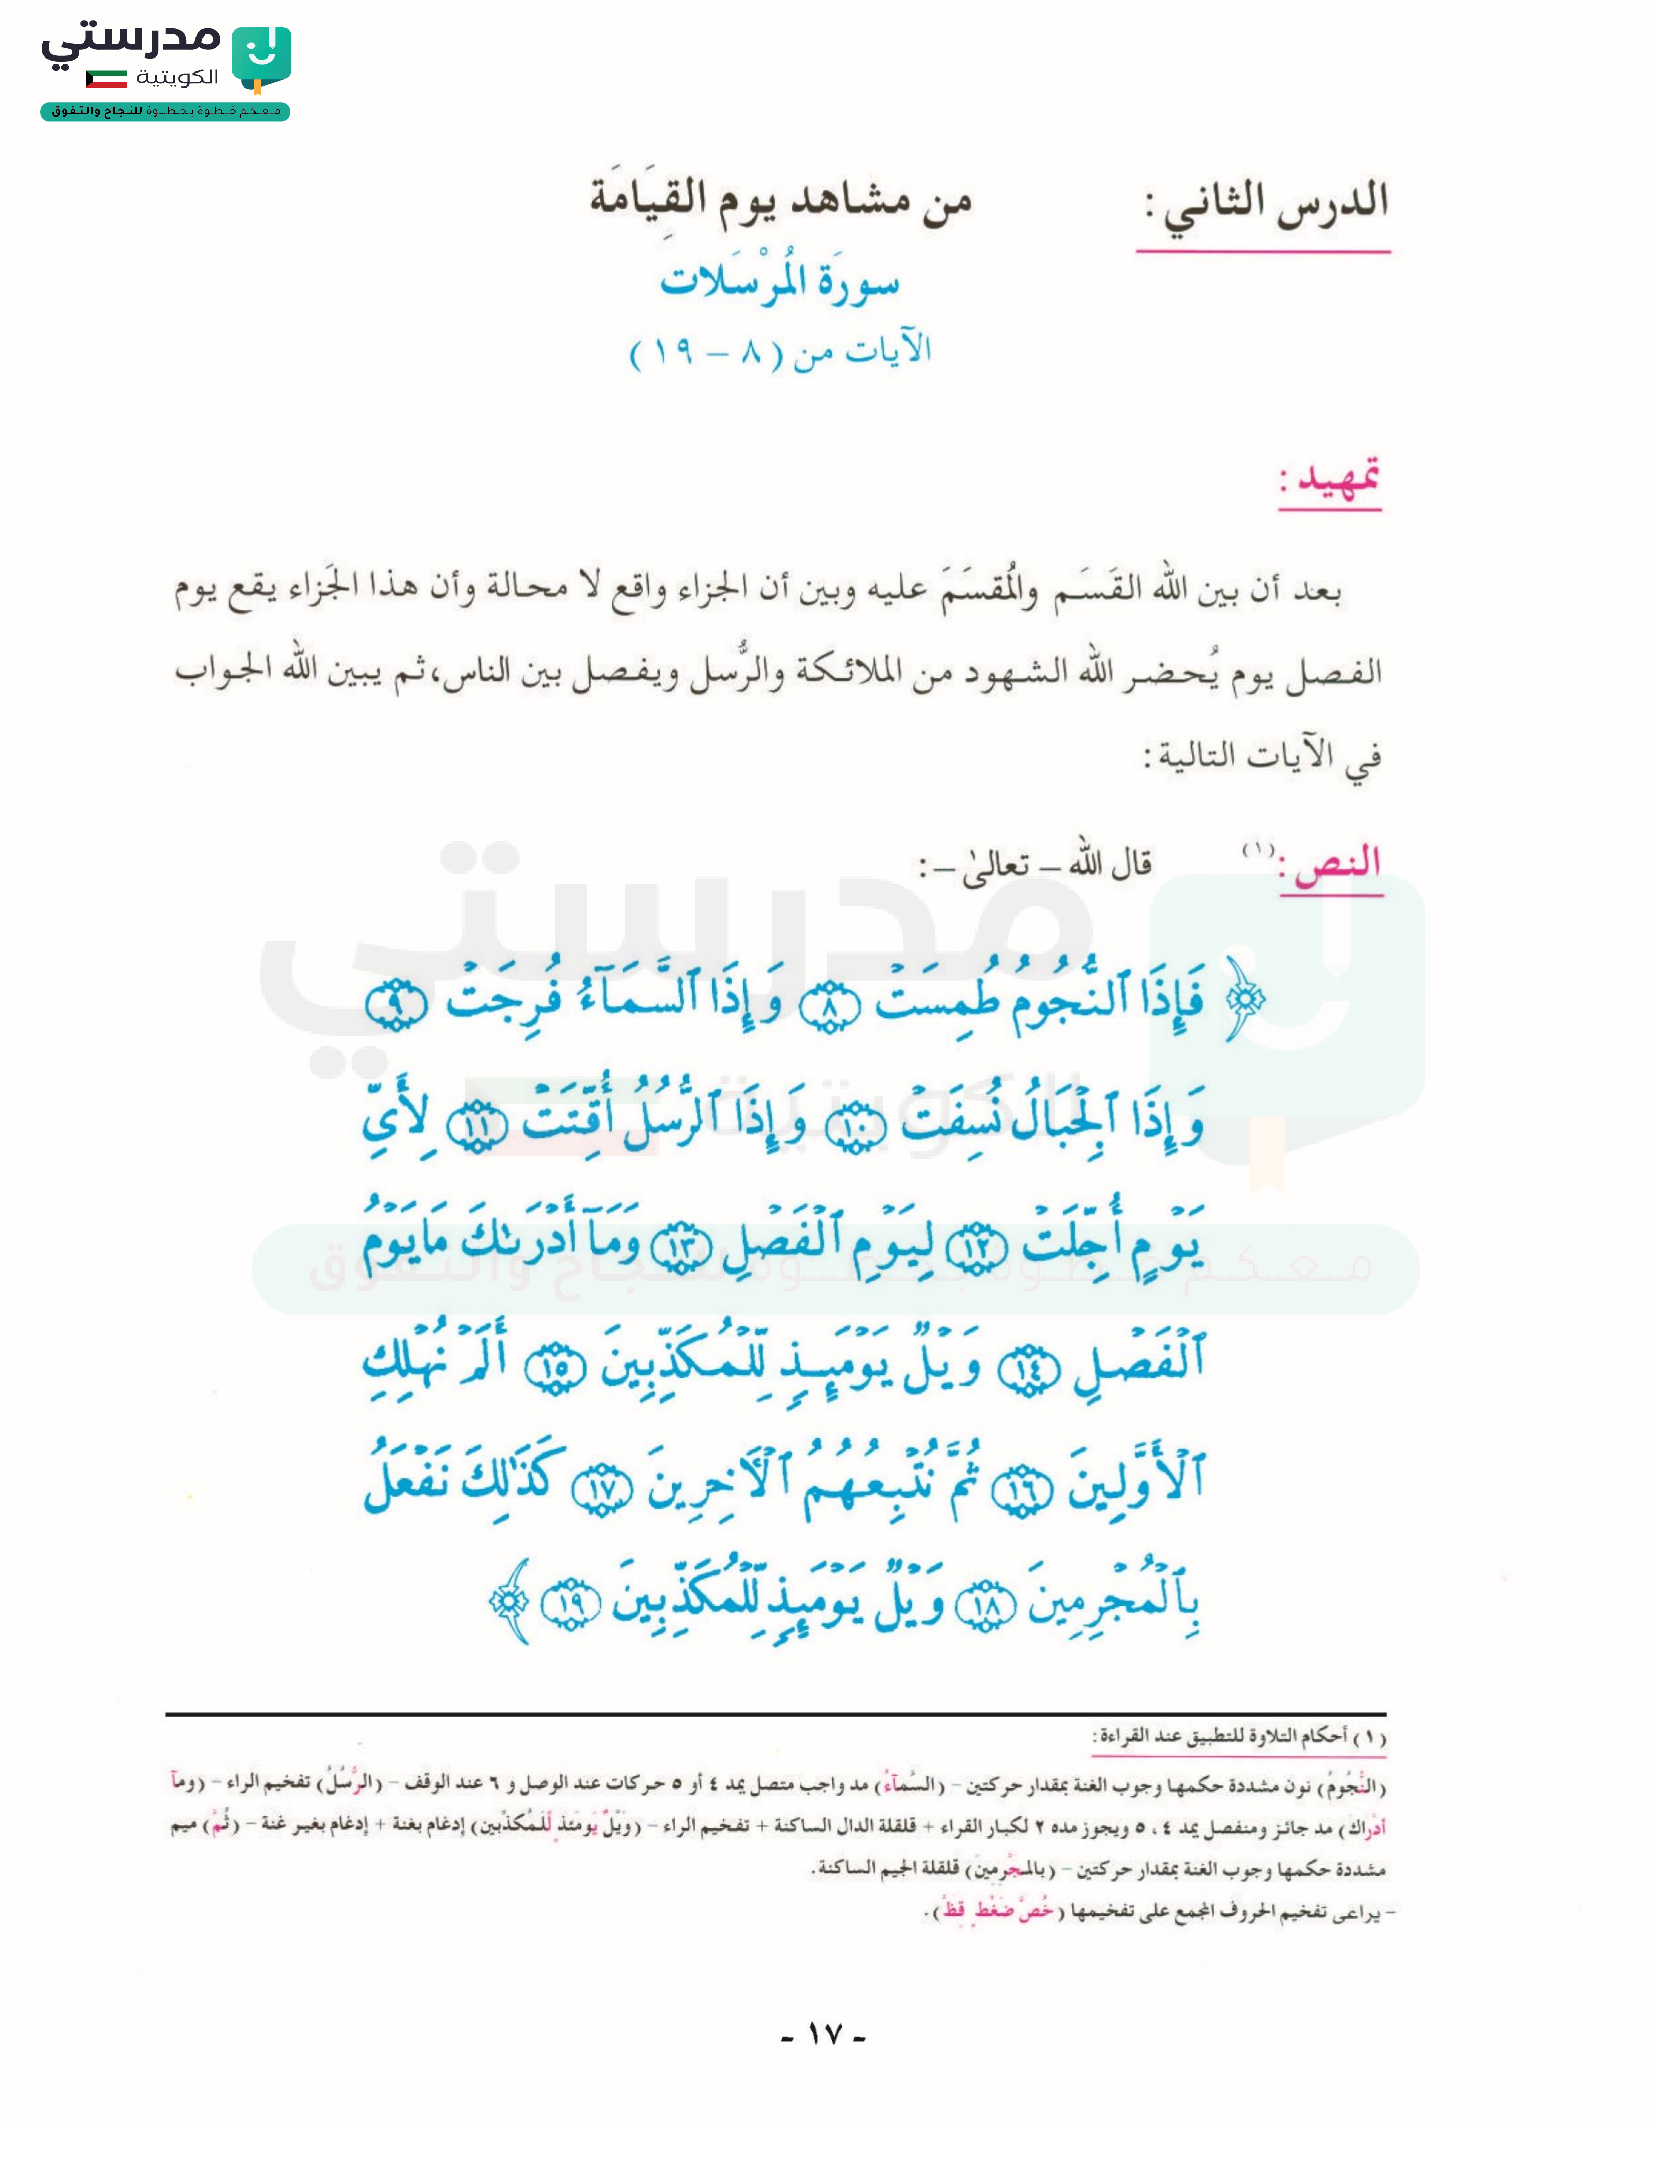 مدرستي
الكويتية
معكم خطوة بخطوة للنجاح والتفوق
الدرس الثاني : من مشاهد يوم القِيَامَة
سورَة المُرْسَلات
الآيات من (٨ – ١٩)
تمهيد :
بعد أن بين الله القَسَم والمُقسَمَ عليه وبين أن الجزاء واقع لا محالة وأن هذا الجَزاء يقع يوم
الفصل يوم يُحضر الله الشهود من الملائكة والرُّسل ويفصل بين الناس،ثم يبين الله الجواب
في الآيات التالية :
النص :(١) قال الله – تعالىٰ – :
﴿ فَإِذَا ٱلنُّجُومُ طُمِسَتْ ٨ وَإِذَا ٱلسَّمَآءُ فُرِجَتْ ٩
وَإِذَا ٱلْجِبَالُ نُسِفَتْ ١٠ وَإِذَا ٱلرُّسُلُ أُقِّتَتْ ١١ لِأَيِّ
يَوْمٍ أُجِّلَتْ ١٢ لِيَوْمِ ٱلْفَصْلِ ١٣ وَمَآ أَدْرَىٰكَ مَا يَوْمُ
ٱلْفَصْلِ ١٤ وَيْلٌ يَوْمَئِذٍ لِّلْمُكَذِّبِينَ ١٥ أَلَمْ نُهْلِكِ
ٱلْأَوَّلِينَ ١٦ ثُمَّ نُتْبِعُهُمُ ٱلْآخِرِينَ ١٧ كَذَٰلِكَ نَفْعَلُ
بِٱلْمُجْرِمِينَ ١٨ وَيْلٌ يَوْمَئِذٍ لِّلْمُكَذِّبِينَ ١٩ ﴾
(١) أحكام التلاوة للتطبيق عند القراءة :
(النُّجُومُ) نون مشددة حكمها وجوب الغنة بمقدار حركتين – (السَّمآءُ) مد واجب متصل يمد ٤ أو ٥ حركات عند الوصل و ٦ عند الوقف – (الرُّسُلُ) تفخيم الراء – (ومآ
أدْراكَ) مد جائز ومنفصل يمد ٤ ، ٥ ويجوز مده ٢ لكبار القراء + قلقلة الدال الساكنة + تفخيم الراء – (وَيْلٌ يَومَئذٍ لِّلمُكذِّبين) إدغام بغنة + إدغام بغير غنة – (ثُمَّ) ميم
مشددة حكمها وجوب الغنة بمقدار حركتين – (بالمجْرمينَ) قلقلة الجيم الساكنة .
– يراعى تفخيم الحروف المجمع على تفخيمها (خُصَّ ضَغْطٍ قِظْ) .
- ١٧ -